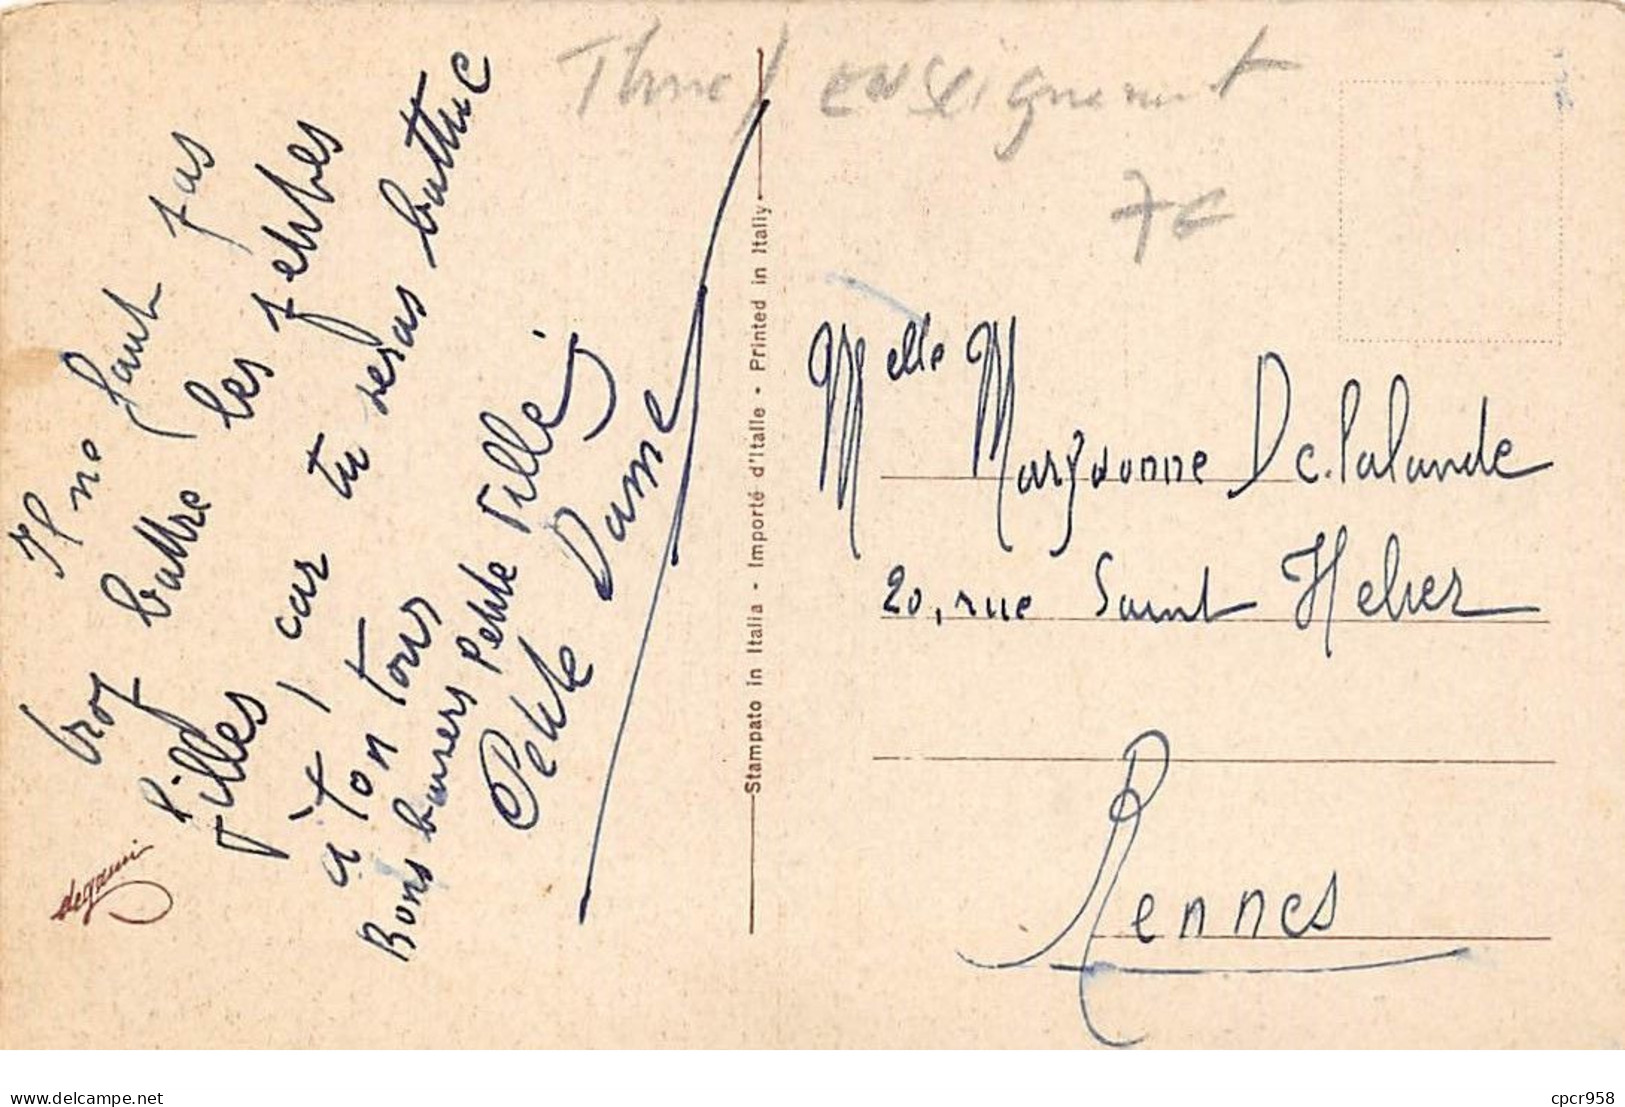 Il ne faut pas
trop battre les petites
filles, car tu seras battue
à ton tour
Bons baisers Petite Fille
Petite Dame
degami
Stampato in Italia - Importé d'Italie - Printed in Italy
enseignement
7€
Melle Maryvonne Delalande
20, rue Saint Helier
Rennes
delcampe.net
cpcr958